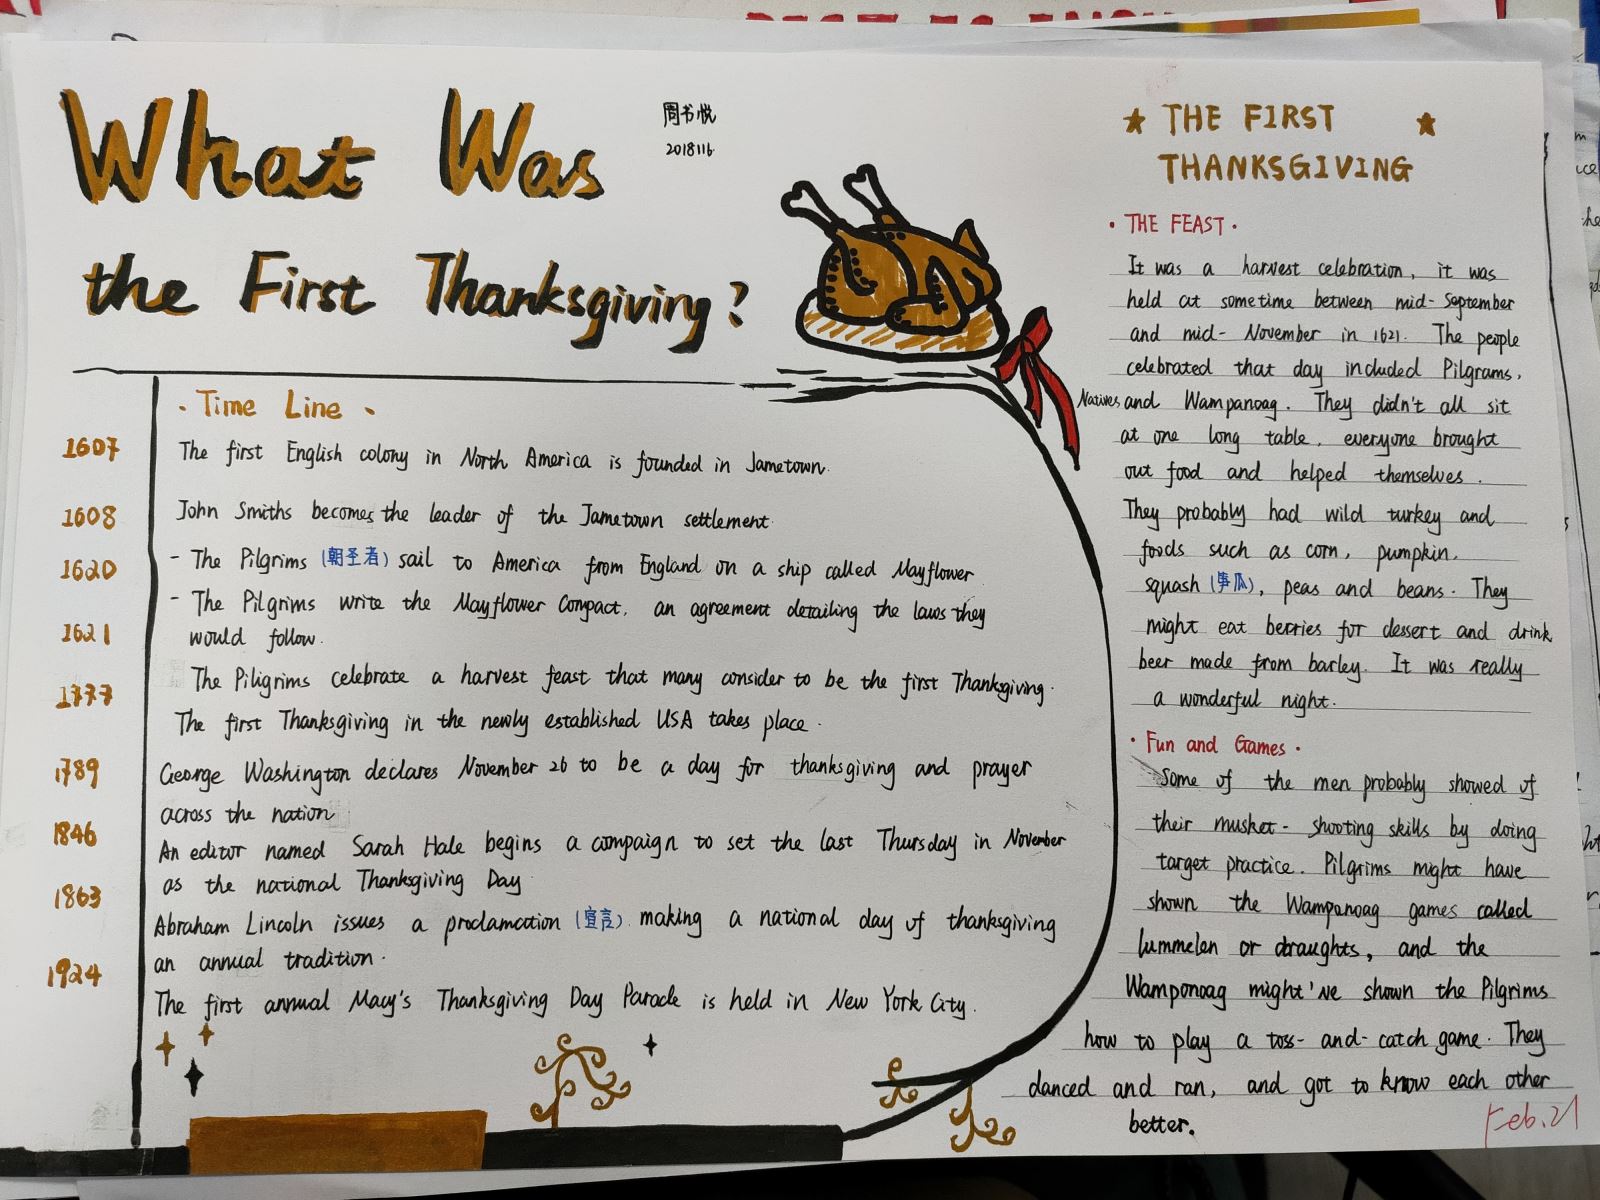 What Was
the First Thanksgiving?
周书悦
2018116
· Time Line ·
1607
The first English colony in North America is founded in Jametown.
1608
John Smiths becomes the leader of the Jametown settlement
1620
- The Pilgrims (朝圣者) sail to America from England on a ship called Mayflower
- The Pilgrims write the Mayflower Compact, an agreement detailing the laws they
would follow.
1621
The Piligrims celebrate a harvest feast that many consider to be the first Thanksgiving.
1777
The first Thanksgiving in the newly established USA takes place.
1789
George Washington declares November 26 to be a day for thanksgiving and prayer
across the nation
1846
An editor named Sarah Hale begins a campaign to set the last Thursday in November
as the national Thanksgiving Day
1863
Abraham Lincoln issues a proclamation (宣言) making a national day of thanksgiving
an annual tradition.
1924
The first annual Macy's Thanksgiving Day Parade is held in New York City.
THE FIRST
THANKSGIVING
· THE FEAST ·
It was a harvest celebration, it was
held at sometime between mid-September
and mid-November in 1621. The people
celebrated that day included Pilgrams,
Natives and Wampanoag. They didn't all sit
at one long table, everyone brought
out food and helped themselves.
They probably had wild turkey and
foods such as corn, pumpkin,
squash (笋瓜), peas and beans. They
might eat berries for dessert and drink
beer made from barley. It was really
a wonderful night.
· Fun and Games ·
Some of the men probably showed of
their musket-shooting skills by doing
target practice. Pilgrims might have
shown the Wampanoag games called
lummelen or draughts, and the
Wamponoag might've shown the Pilgrims
how to play a toss-and-catch game. They
danced and ran, and got to know each other
better.
Feb.21